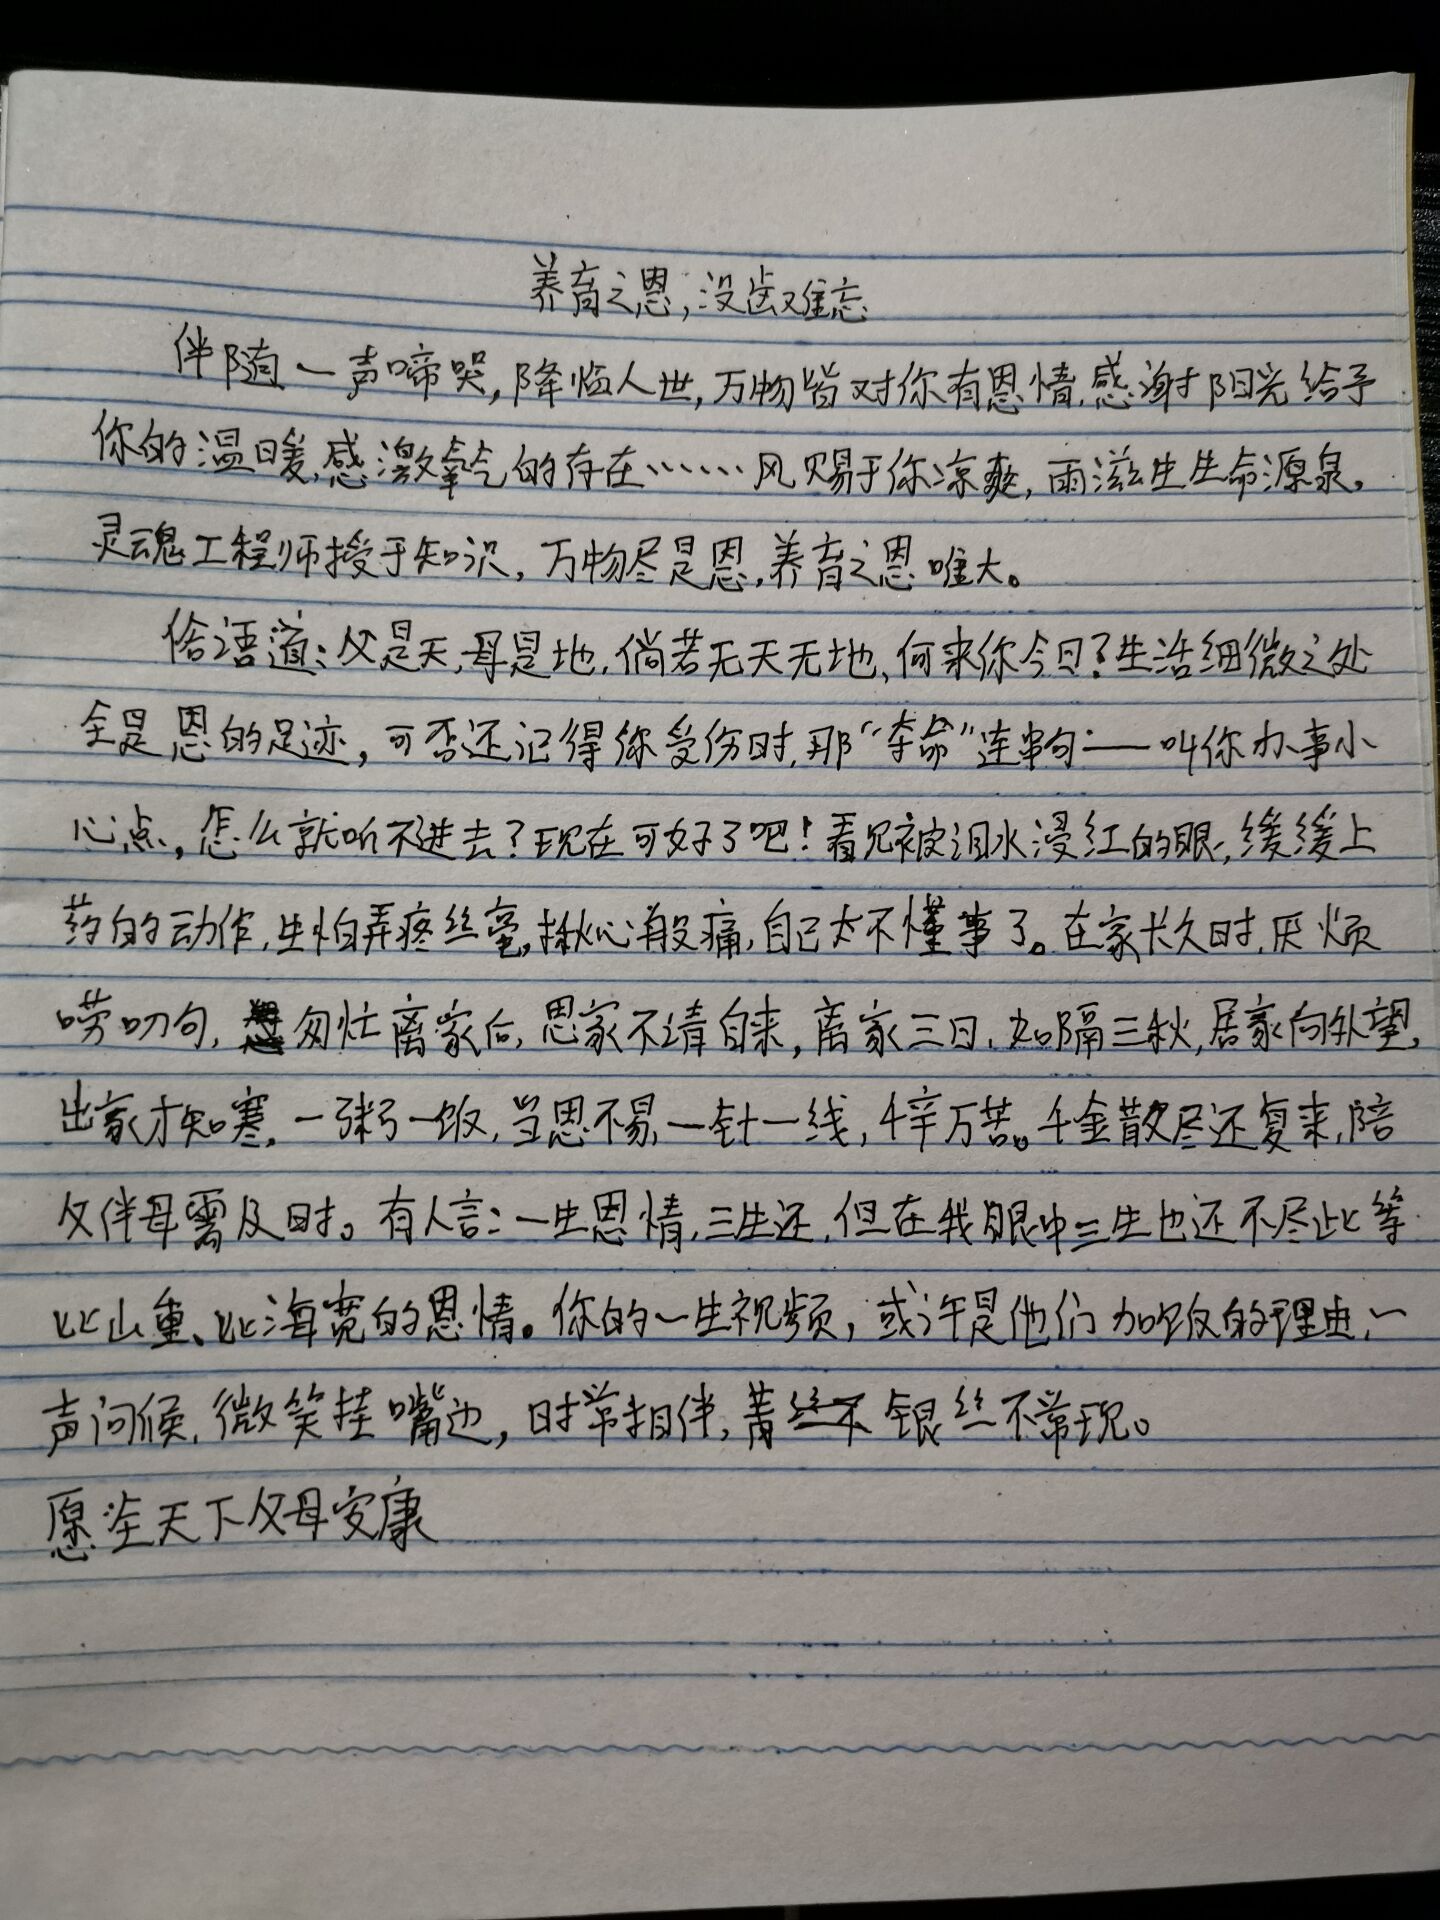 养育之恩,没齿难忘
伴随一声啼哭,降临人世,万物皆对你有恩情.感谢阳光给予
你的温暖,感激氧气的存在……风赐于你凉爽,雨滋生生命源泉,
灵魂工程师授于知识,万物尽是恩,养育之恩唯大。
俗语道:父是天,母是地,倘若无天无地,何来你今日?生活细微之处
全是恩的足迹,可否还记得你受伤时,那“夺命”连串句:——叫你办事小
心点,怎么就听不进去?现在可好了吧!看见被泪水浸红的眼,缓缓上
药的动作,生怕弄疼丝毫,揪心般痛,自己太不懂事了。在家长久时,厌烦
唠叨句,匆忙离家后,思家不请自来,离家三日,如隔三秋,居家向外望,
出家才知寒,一粥一饭,当思不易,一针一线,千辛万苦。千金散尽还复来,陪
父伴母需及时。有人言:一生恩情,三生还,但在我眼中三生也还不尽此等
比山重、比海宽的恩情。你的一生视频,或许是他们加饭的理由,一
声问候,微笑挂嘴边,时常相伴,银丝不常现。
愿天下父母安康